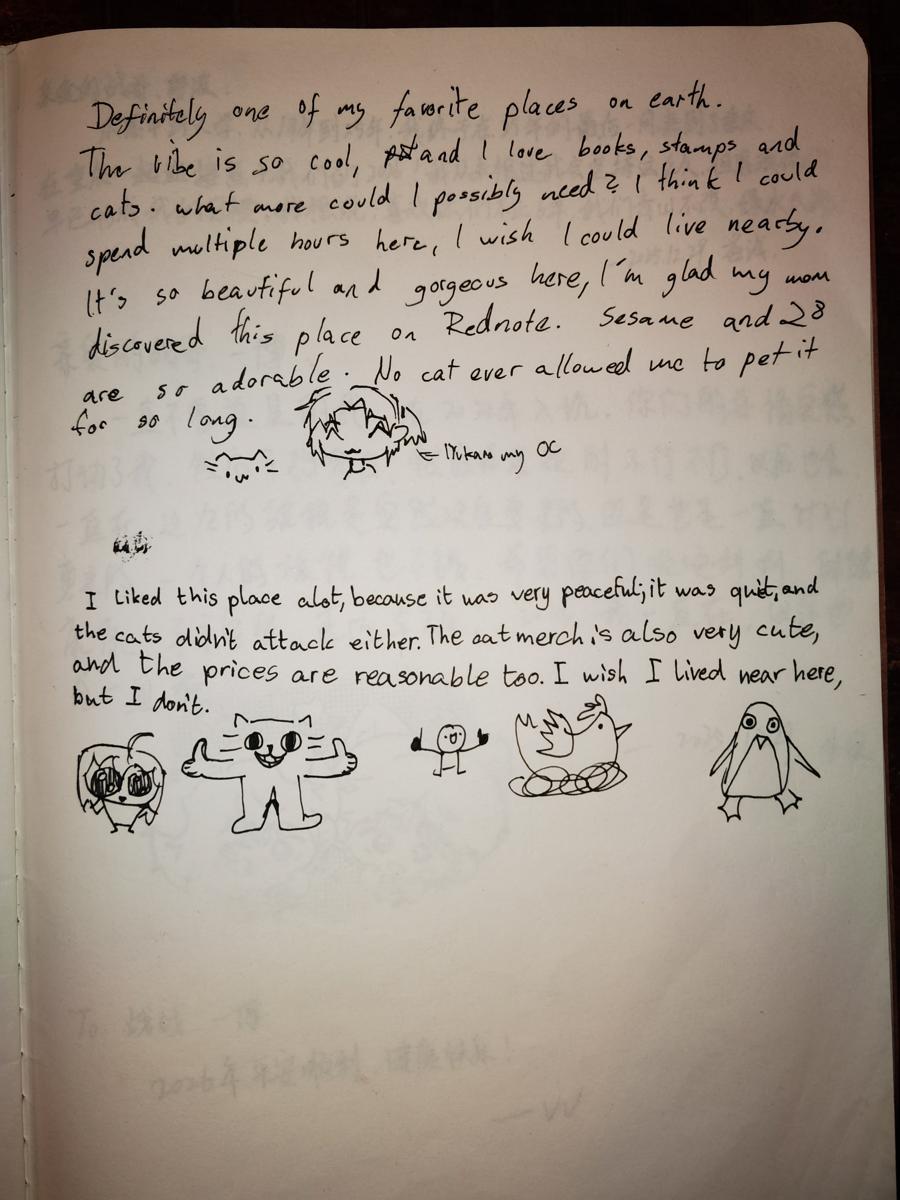 Definitely one of my favorite places on earth.
The vibe is so cool, and I love books, stamps and
cats. what more could I possibly need? I think I could
spend multiple hours here, I wish I could live nearby.
It's so beautiful and gorgeous here, I'm glad my mom
discovered this place on Rednote. Sesame and 28
are so adorable. No cat ever allowed me to pet it
for so long.
← my OC
I liked this place alot, because it was very peaceful; it was quit, and
the cats didn't attack either. The cat merch is also very cute,
and the prices are reasonable too. I wish I lived near here,
but I don't.
To
2026年
—VV